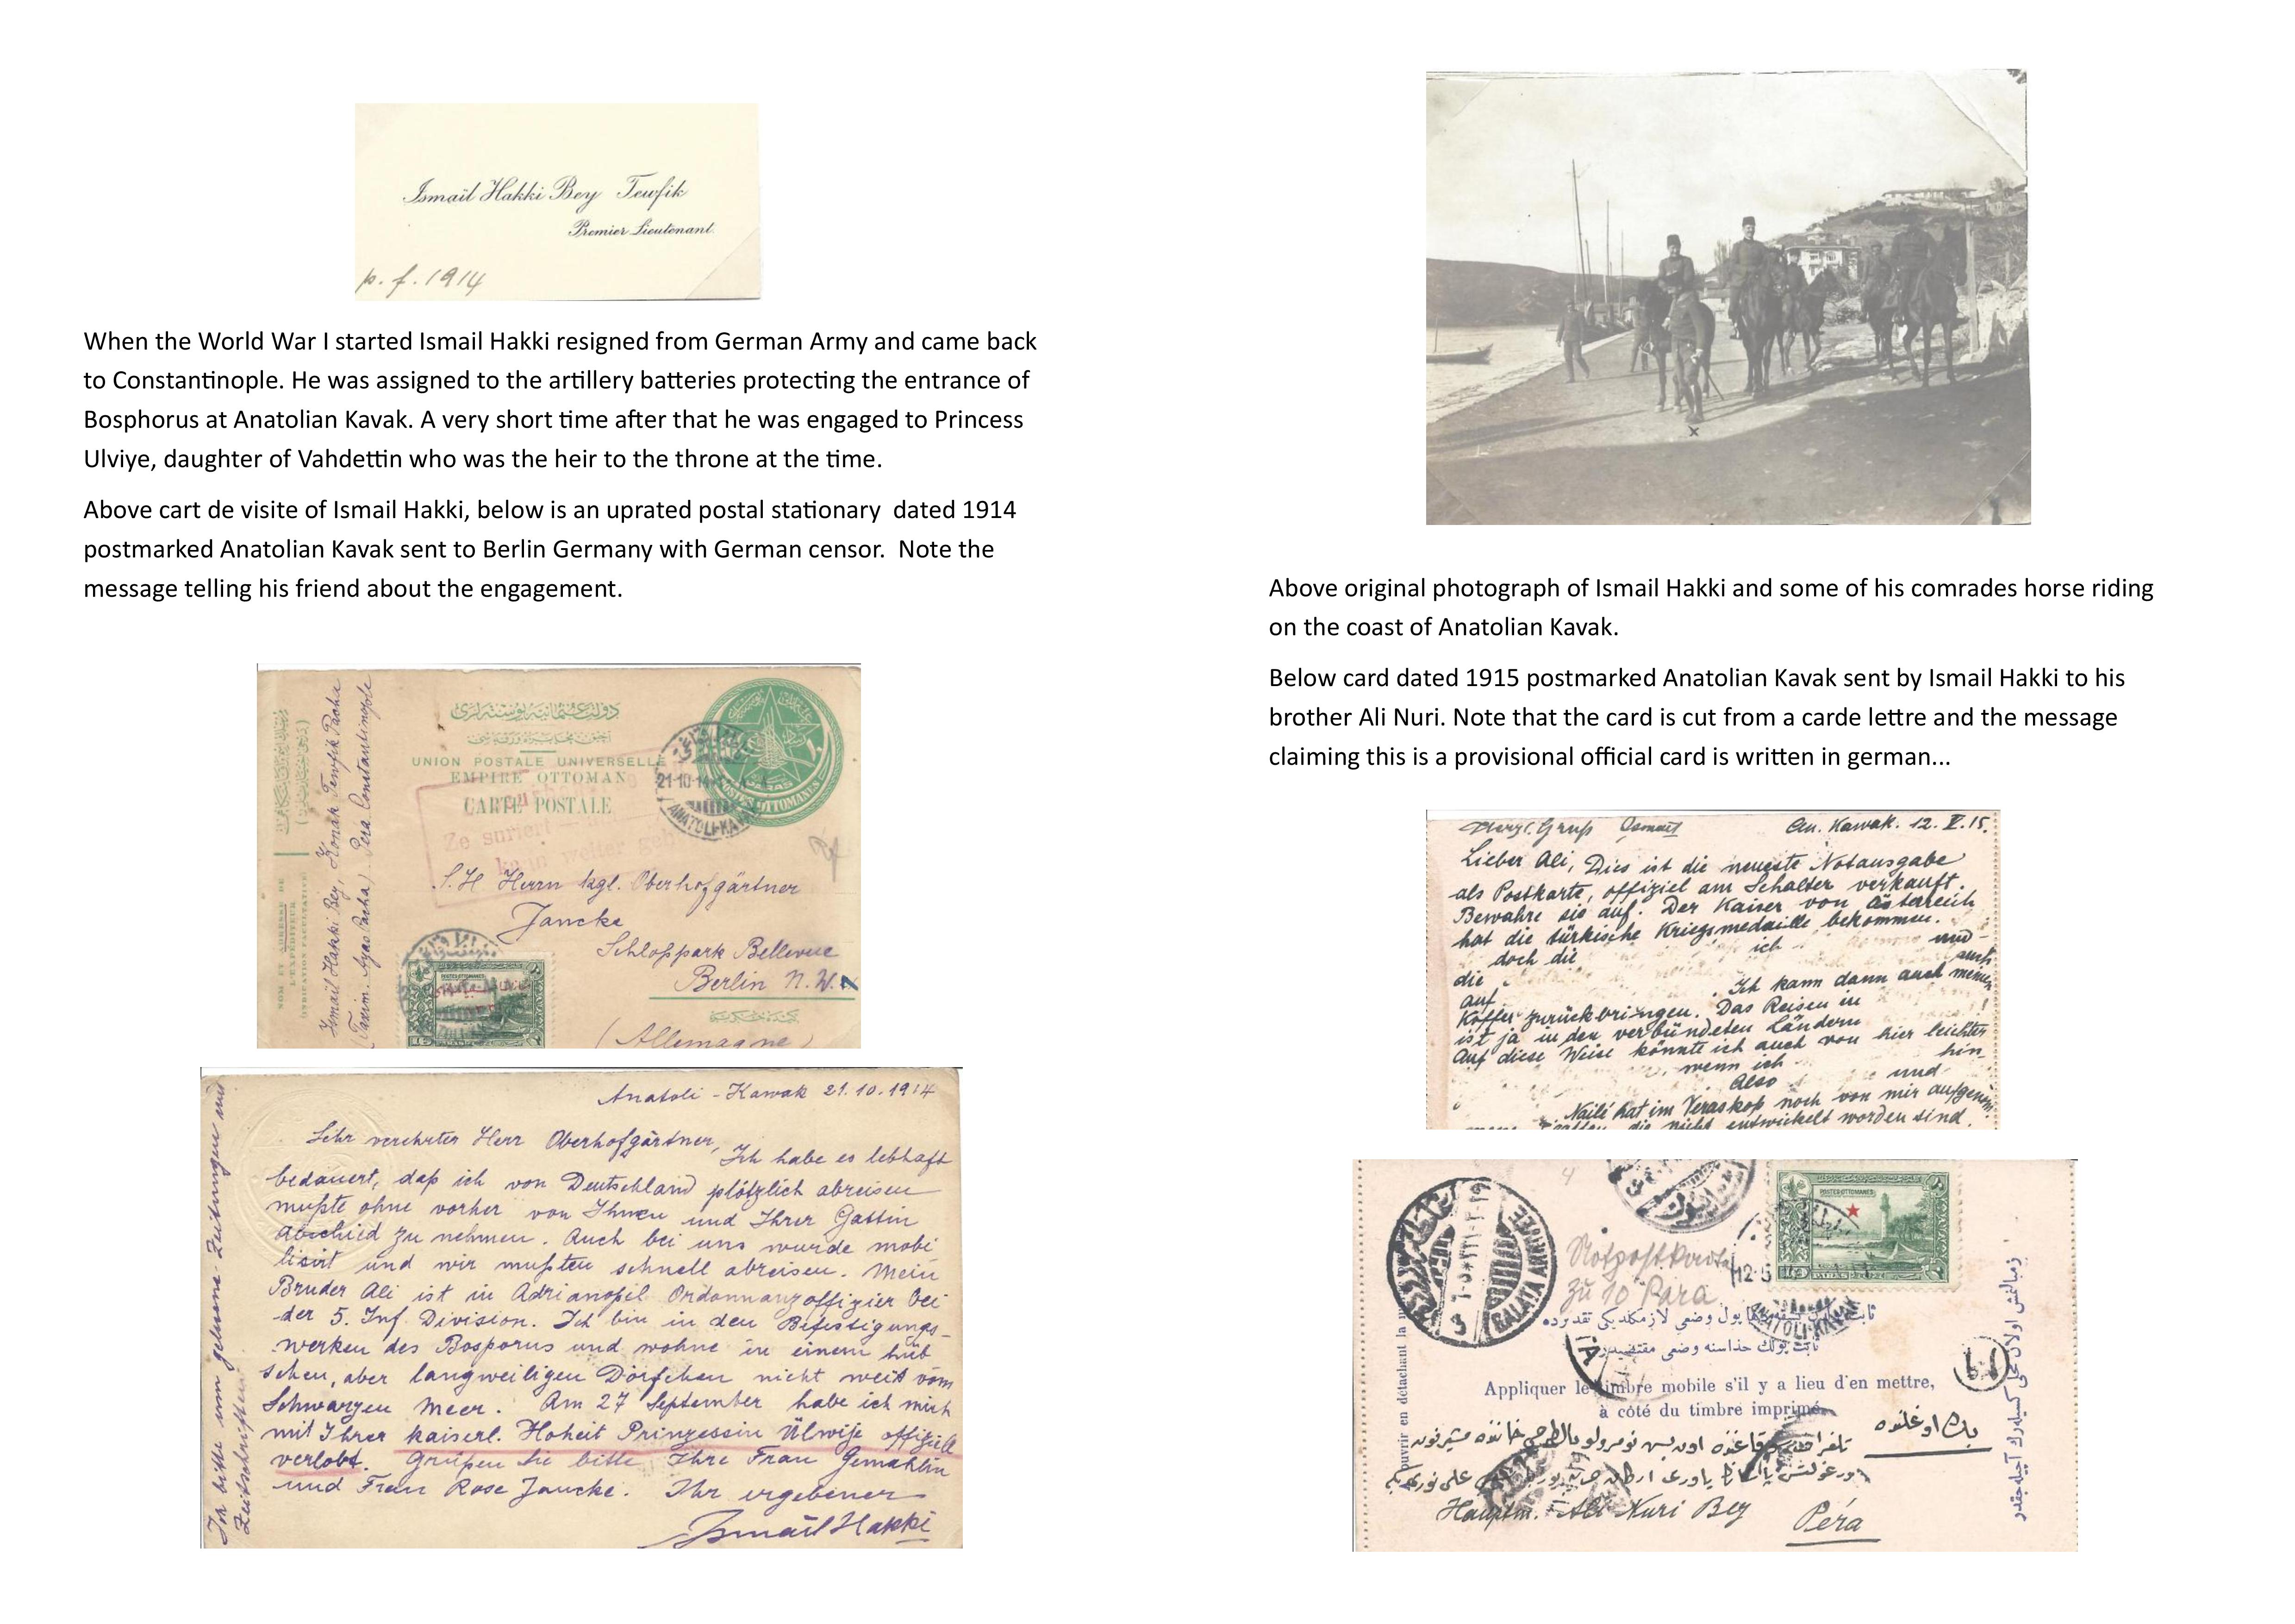 Ismaïl Hakki Bey Tewfik
Premier Lieutenant.
p. f. 1914
When the World War I started Ismail Hakki resigned from German Army and came back
to Constantinople. He was assigned to the artillery batteries protecting the entrance of
Bosphorus at Anatolian Kavak. A very short time after that he was engaged to Princess
Ulviye, daughter of Vahdettin who was the heir to the throne at the time.
Above cart de visite of Ismail Hakki, below is an uprated postal stationary dated 1914
postmarked Anatolian Kavak sent to Berlin Germany with German censor. Note the
message telling his friend about the engagement.
NOM ET ADRESSE DE
L'EXPÉDITEUR
(INDICATION FACULTATIVE)
Ismail Hakki Bey, Konak Tewfik Pacha
(Taxim. Ayas Pacha) Pera Constantinople
UNION POSTALE UNIVERSELLE
EMPIRE OTTOMAN
CARTE POSTALE
21-10-14
ANATOLI-KAVAK
POSTES OTTOMANES
kann weiter
S. H Herrn kgl. Oberhofgärtner
Jancke
Schloßpark Bellevue
Berlin N. W.
POSTES OTTOMANES
(Allemagne)
Anatoli - Kawak 21. 10. 1914
Sehr verehrter Herr Oberhofgärtner,
Ich habe es lebhaft
bedauert, daß ich von Deutschland plötzlich abreisen
mußte ohne vorher von Ihnen und Ihrer Gattin
Abschied zu nehmen. Auch bei uns wurde mobi
lisirt und wir mußten schnell abreisen. Mein
Bruder Ali ist in Adrianopil Ordonnanzoffizier bei
der 5. Inf. Division. Ich bin in den Befestigungs-
werken des Bosporus und wohne in einem hüb
schen, aber langweiligen Dörfchen nicht weit vom
Schwarzen Meer. Am 27 September habe ich mich
mit Ihrer kaiserl. Hoheit Prinzessin Ülwije offiziell
verlobt. Grüßen Sie bitte Ihre Frau Gemahlin
und Frau Rose Jancke. Ihr ergebener
Ismail Hakki
Ich bitte um Zeitungen und
Zeitschriften
Above original photograph of Ismail Hakki and some of his comrades horse riding
on the coast of Anatolian Kavak.
Below card dated 1915 postmarked Anatolian Kavak sent by Ismail Hakki to his
brother Ali Nuri. Note that the card is cut from a carde lettre and the message
claiming this is a provisional official card is written in german...
Herzl. Gruß Ismail An. Kawak. 12. V. 15.
Lieber Ali, Dies ist die neueste Notausgabe
als Postkarte, offiziel am Schalter verkauft.
Bewahre sie auf. Der Kaiser von Österreich
hat die türkische Kriegsmedaille bekommen.
doch die ich und
die auch
auf Ich kann dann auch meinen
Koffer zurückbringen. Das Reisen in
ist ja in den verbündeten Ländern
Auf diese Weise könnte ich auch von hier leichter
wenn ich hin-
Also und
Naile hat im Veraskop noch von mir aufgenom
die nicht entwickelt worden sind.
BALATA ANDJEE
Notpostkarte
zu 10 Para
POSTES OTTOMANES
12-5
ANATOLI-KAVAK
Appliquer le timbre mobile s'il y a lieu d'en mettre,
à côté du timbre imprimé.
ouvrir en détachant la
بك اوغلنده
Hauptm. Ali Nuri Bey
Péra